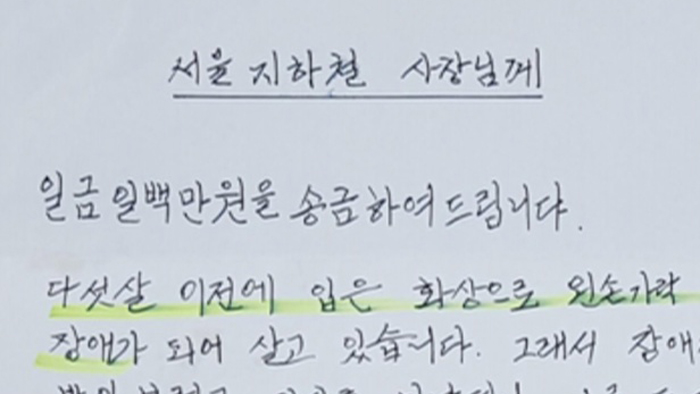 서울 지하철 사장님께
일금 일백만원을 송금하여드립니다.
다섯살 이전에 입은 화상으로 왼손가락
장애가 되어 살고 있습니다. 그래서 장애